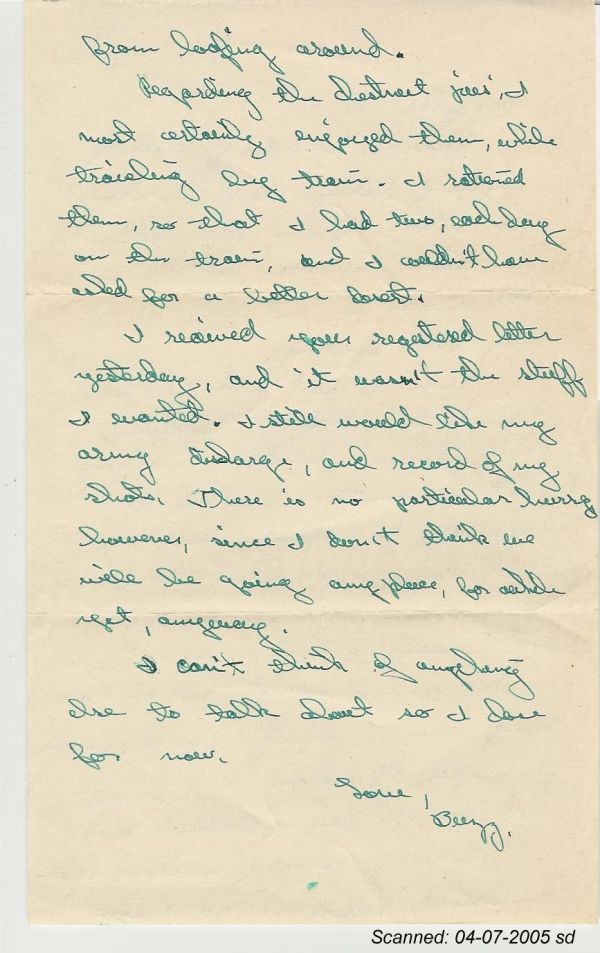 from looking around.
Regarding the
I
most certainly enjoyed them, while
traveling by train. I rationed
them, so that I had two, each day
on the train, and I couldn't have
asked for a better
I received your registered letter
yesterday, and it wasn't the stuff
I wanted. I still would like my
army discharge, and record of my
shots. There is no particular hurry
however, since I don't think we
will be going anyplace, for awhile
yet, anyway.
I can't think of anything
else to talk about so I
for now.
Love,
Scanned: 04-07-2005 sd